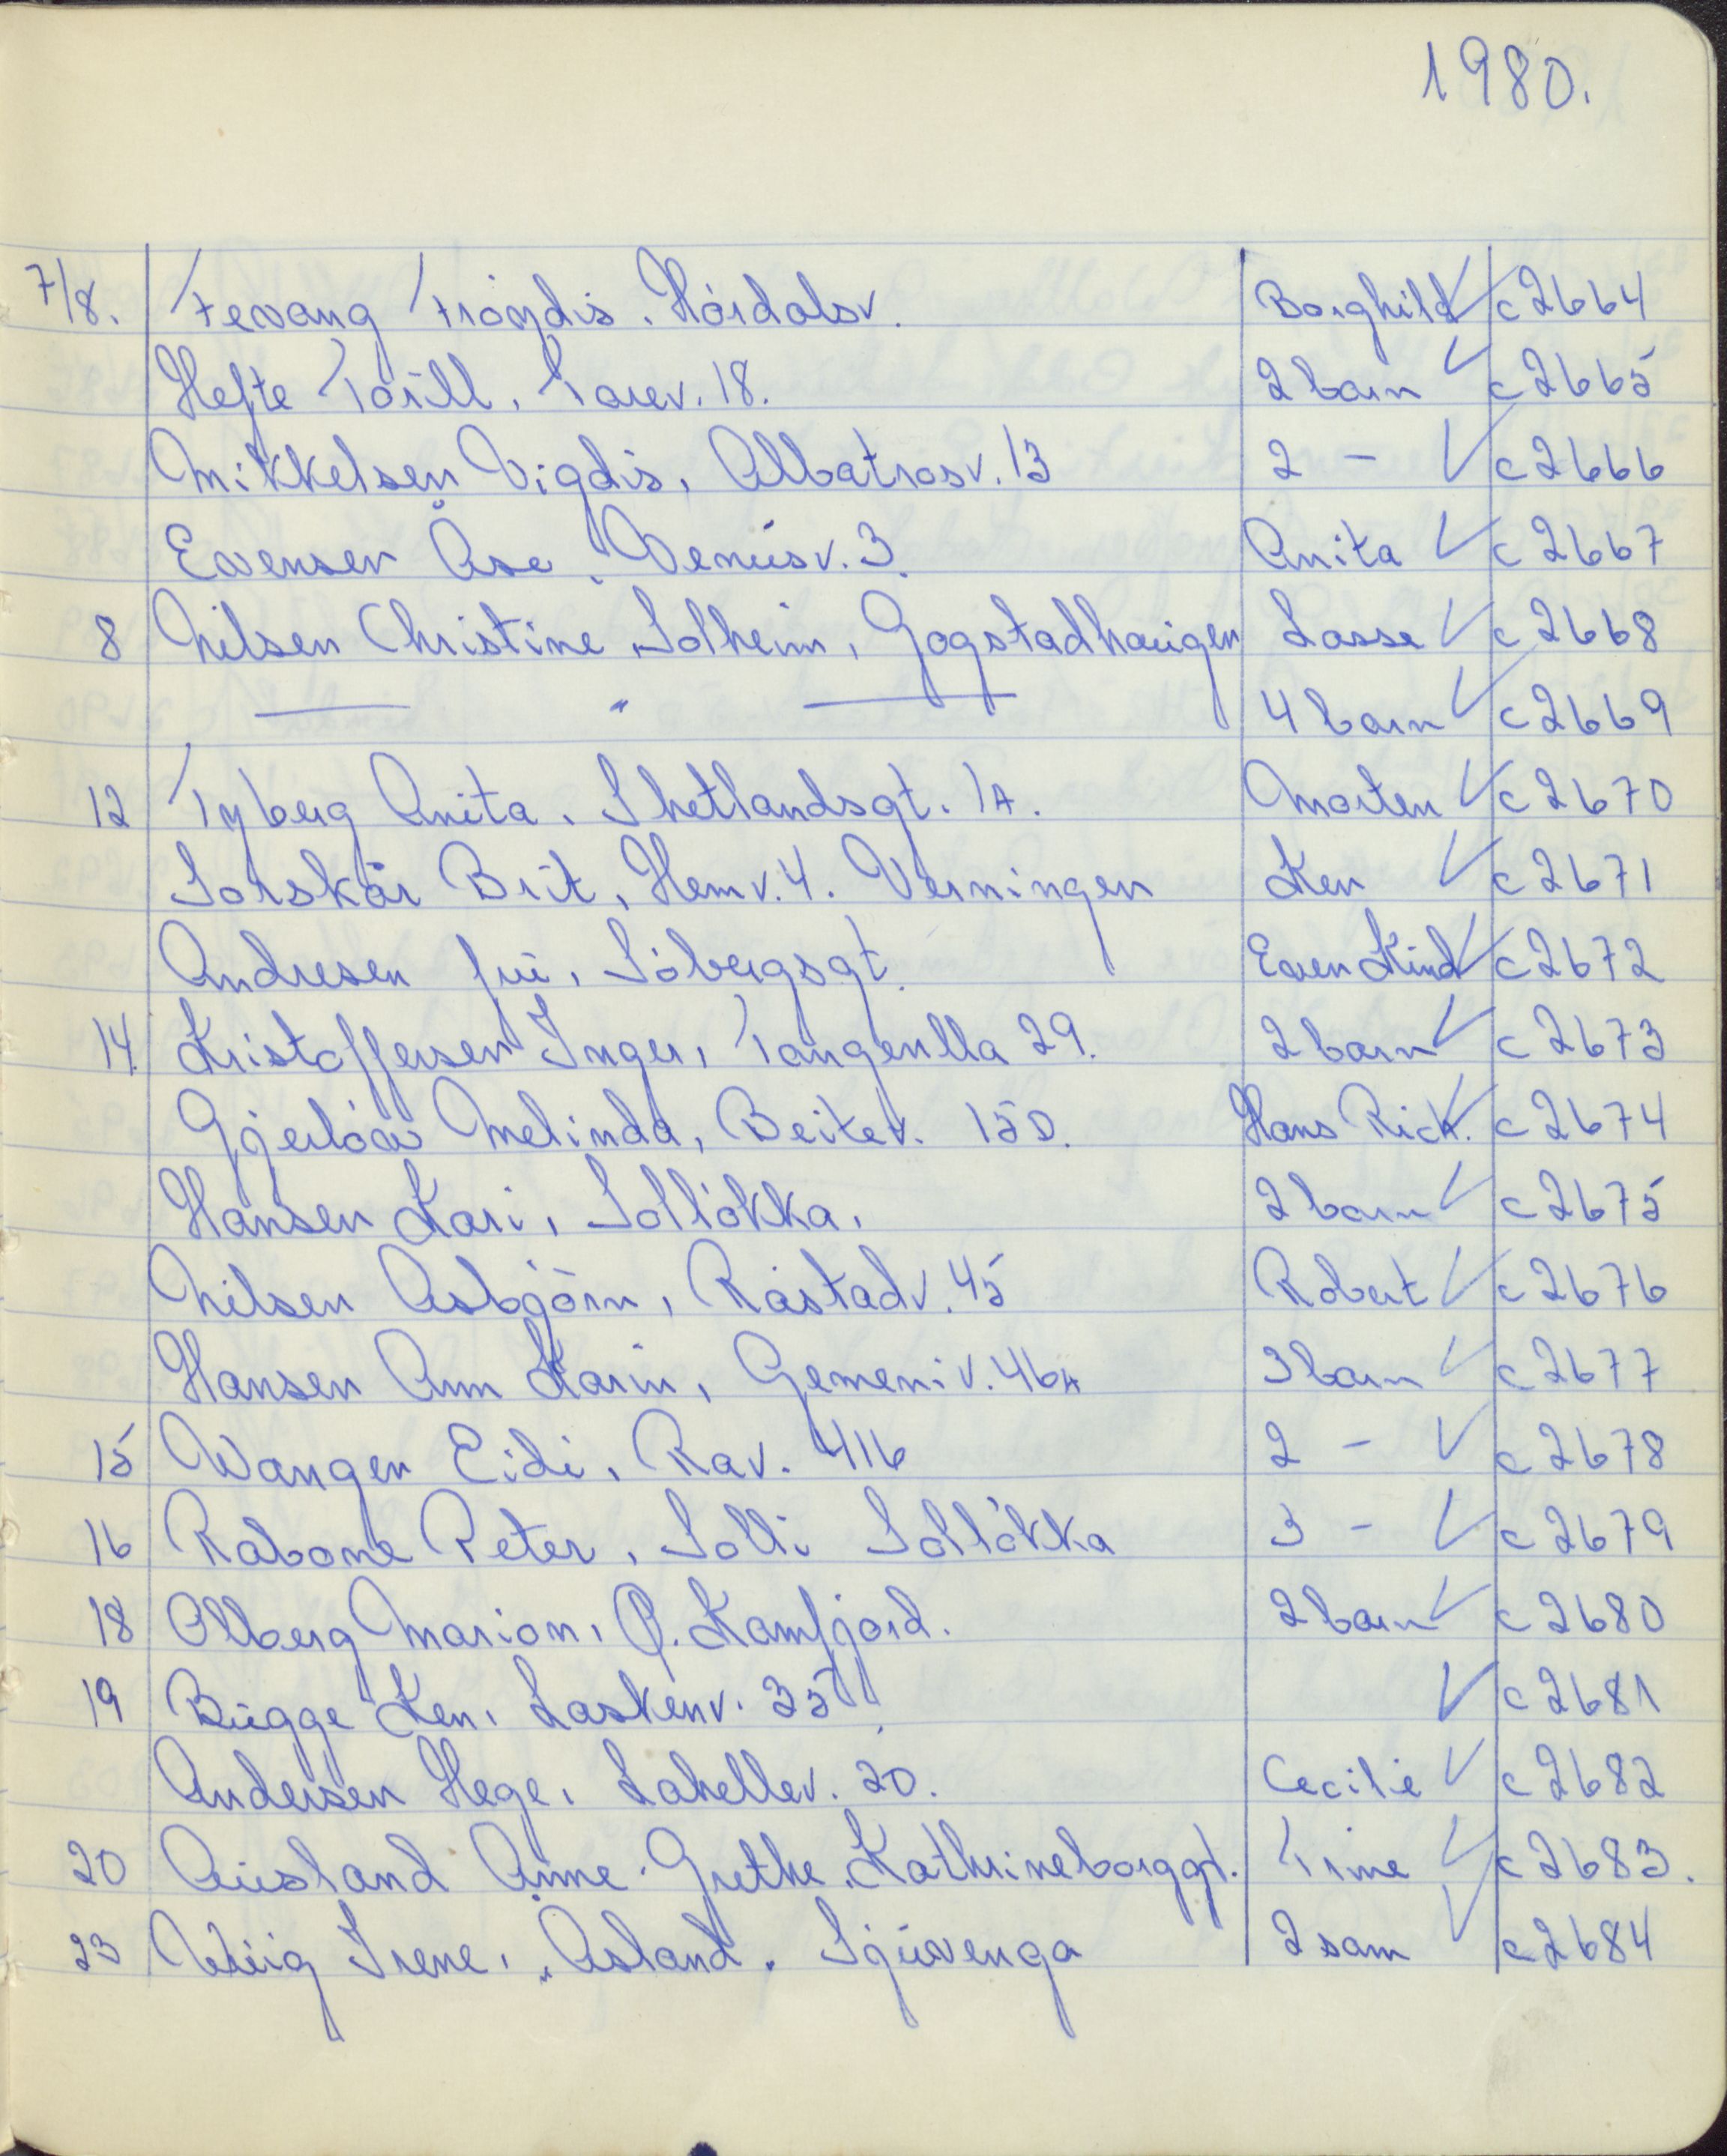 1980.
7/8. Fevang Fröydis. Hårdalsv. Borghild ✓ c 2664
Hefte Torill, Torev. 18. 2 barn ✓ c 2665
Mikkelsen Vigdis, Albatrosv. 13 2 - ✓ c 2666
Evensen Åse, Venusv. 3. Anita ✓ c 2667
8 Nilsen Christine, Solheim, Gogstadhaugen Lasse ✓ c 2668
— " — 4 barn ✓ c 2669
12 Tyberg Anita, Shetlandsgt. 1A. Morten ✓ c 2670
Sorskår Brit, Hemv. 4. Verningen Ken ✓ c 2671
Andresen fru, Söbergsgt. Even Kind ✓ c 2672
14. Kristoffersen Inger, Tangenlla 29. 2 barn ✓ c 2673
Gjerlöw Melinda, Beitev. 15D. Hans Rich. ✓ c 2674
Hansen Kari, Sollökka. 2 barn ✓ c 2675
Nilsen Asbjörn, Råstadv. 45 Robert ✓ c 2676
Hansen Ann Karin, Gemeniv. 46A 3 barn ✓ c 2677
15 Wangen Eidi, Rav. 416 2 - ✓ c 2678
16 Rabone Peter, Solli Sollökka 3 - ✓ c 2679
18 Olberg Marion, Ö. Kamfjord. 2 barn ✓ c 2680
19 Bugge Ken, Laskenv. 35 ✓ c 2681
Andersen Hege, Lahellev. 20. Cecilie ✓ c 2682
20 Ausland Anne-Grethe, Kathrineborggt. Trine ✓ c 2683.
23 Wiig Irene, "Åsland". Sjuvenga 2 sam ✓ c 2684